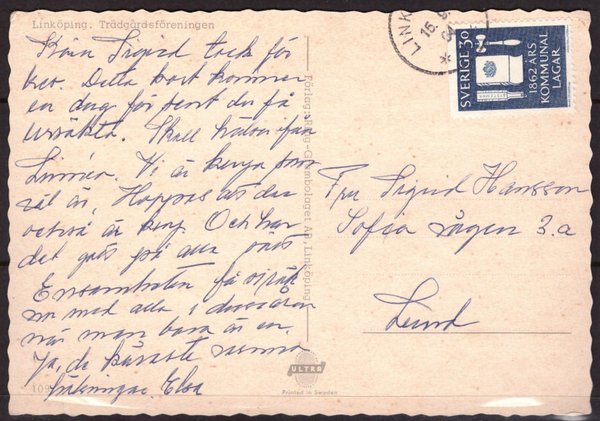 Linköping. Trädgårdsföreningen
Kära Sigrid tack för
brev. Detta kort kommer
en dag för sent du få
ursäkta. Skall hälsa från
Linnéa. Vi är krya som
väl är, Hoppas att du
också är kry. Och har
det gott på alla
Ensamheten få vi räk
na med alla i
när man bara är en.
Ja, de käraste
hälsningar Elsa
109
Förlagsaktiebolaget AB, Linköping
ULTRA
Printed in Sweden
LINK
15.
SVERIGE 30
1862 ÅRS
KOMMUNAL
LAGAR
Fru Sigrid Hansson
Sofia vägen 3.a
Lund